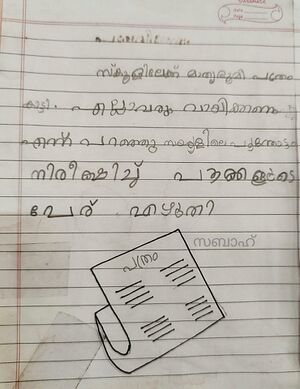 സ്കൂളിലേക്ക് മാതൃഭൂമി പത്രം
കിട്ടി. എല്ലാവരും വായിക്കണം
എന്ന് പറഞ്ഞു സ്കൂളിലെ പൂന്തോട്ടം
നിരീക്ഷിച്ച് പൂക്കളുടെ
പേര് എഴുതി
സബാഹ്
പത്രം